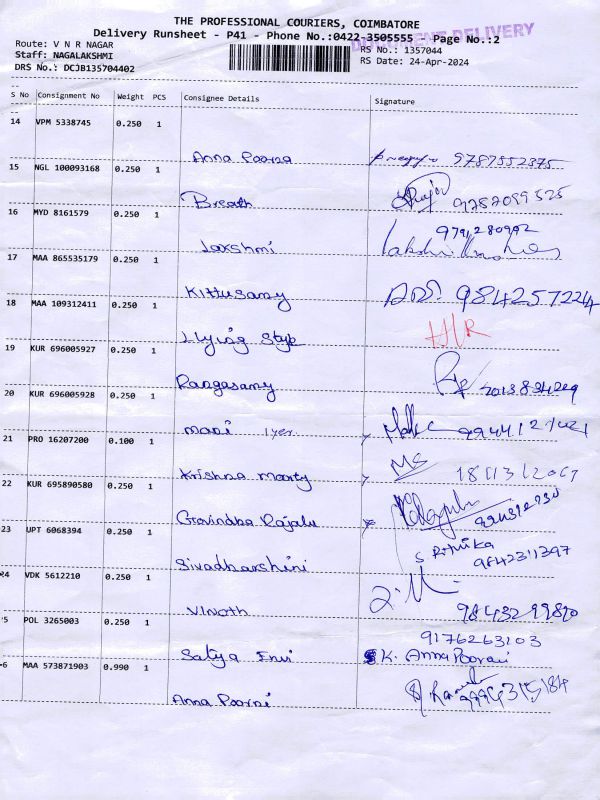 THE PROFESSIONAL COURIERS, COIMBATORE
DOCUMENT DELIVERY
Delivery Runsheet - P41 - Phone No.:0422-3505555 - Page No.:2
Route: V N R NAGAR RS No.: 1357044
Staff: NAGALAKSHMI RS Date: 24-Apr-2024
DRS No.: DCJB135704402
S No Consignment No Weight PCS Consignee Details Signature
14 VPM 5338745 0.250 1
Anna Poorza 9787552375
15 NGL 100093168 0.250 1
Breath 9787099525
16 MYD 8161579 0.250 1
9791280992
Laxshmi
17 MAA 865535179 0.250 1
Kittusamy 984257224
18 MAA 109312411 0.250 1
Style HR
19 KUR 696005927 0.250 1
Rangasamy
20 KUR 696005928 0.250 1
mani iyer
21 PRO 16207200 0.100 1
Krishna marty MS
22 KUR 695890580 0.250 1
Govindba Rajalu
23 UPT 6068394 0.250 1
S Rithika
Sivadharshini 9842311397
24 VDK 5612210 0.250 1
Vinoth 9843299890
5 POL 3265003 0.250 1
9176263103
Satya K. Anna Poorani
6 MAA 573871903 0.990 1
Anna Poorni